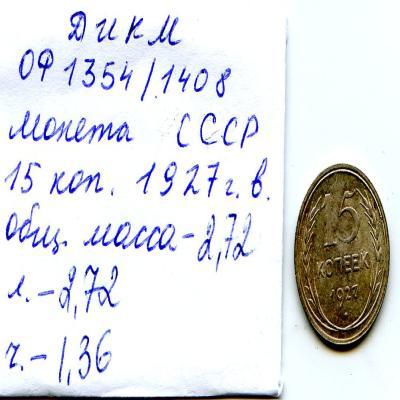 ДИКМ
ОФ 1354/1408
Монета СССР
15 коп. 1927 г. в.
общ. масса - 2,72
л. - 2,72
ч. - 1,36
15
КОПЕЕК
1927